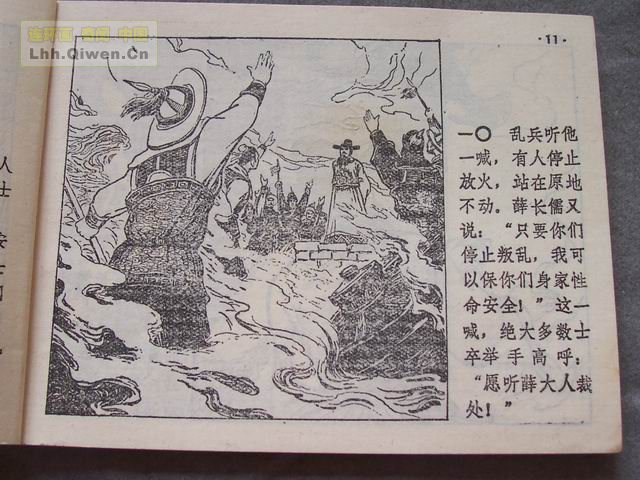 连环画 高阁 中国
Lhh.Qiwen.Cn
·11·
一〇 乱兵听他
一喊，有人停止
放火，站在原地
不动。薛长儒又
说：“只要你们
停止叛乱，我可
以保你们身家性
命安全！”这一
喊，绝大多数士
卒举手高呼：
“愿听薛大人裁
处！”
人
士
安